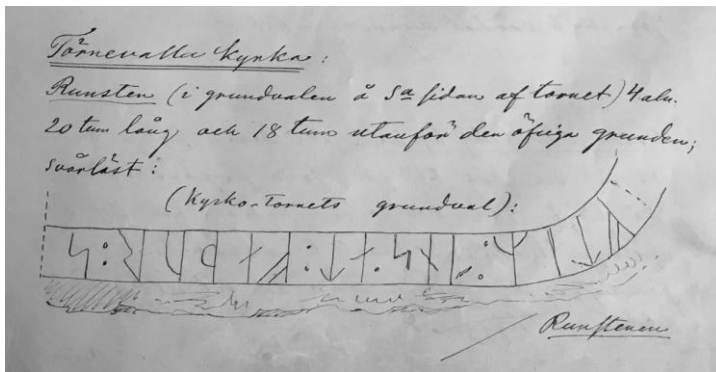 Törnevalla Kyrka:
Runsten (i grundvalen å Sa sidan af tornet) 4 aln.
20 tum lång, och 18 tum utanför den öfriga grunden;
svårläst:
(Kyrko-tornets grundval):
Runstenen